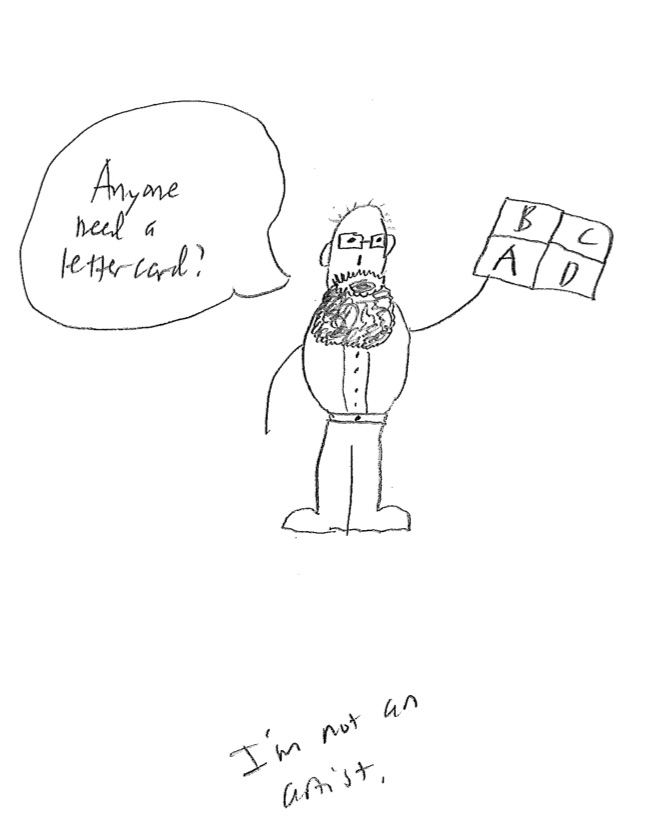 Anyone
need a
letter card?
B C
A D
I'm not an
artist.